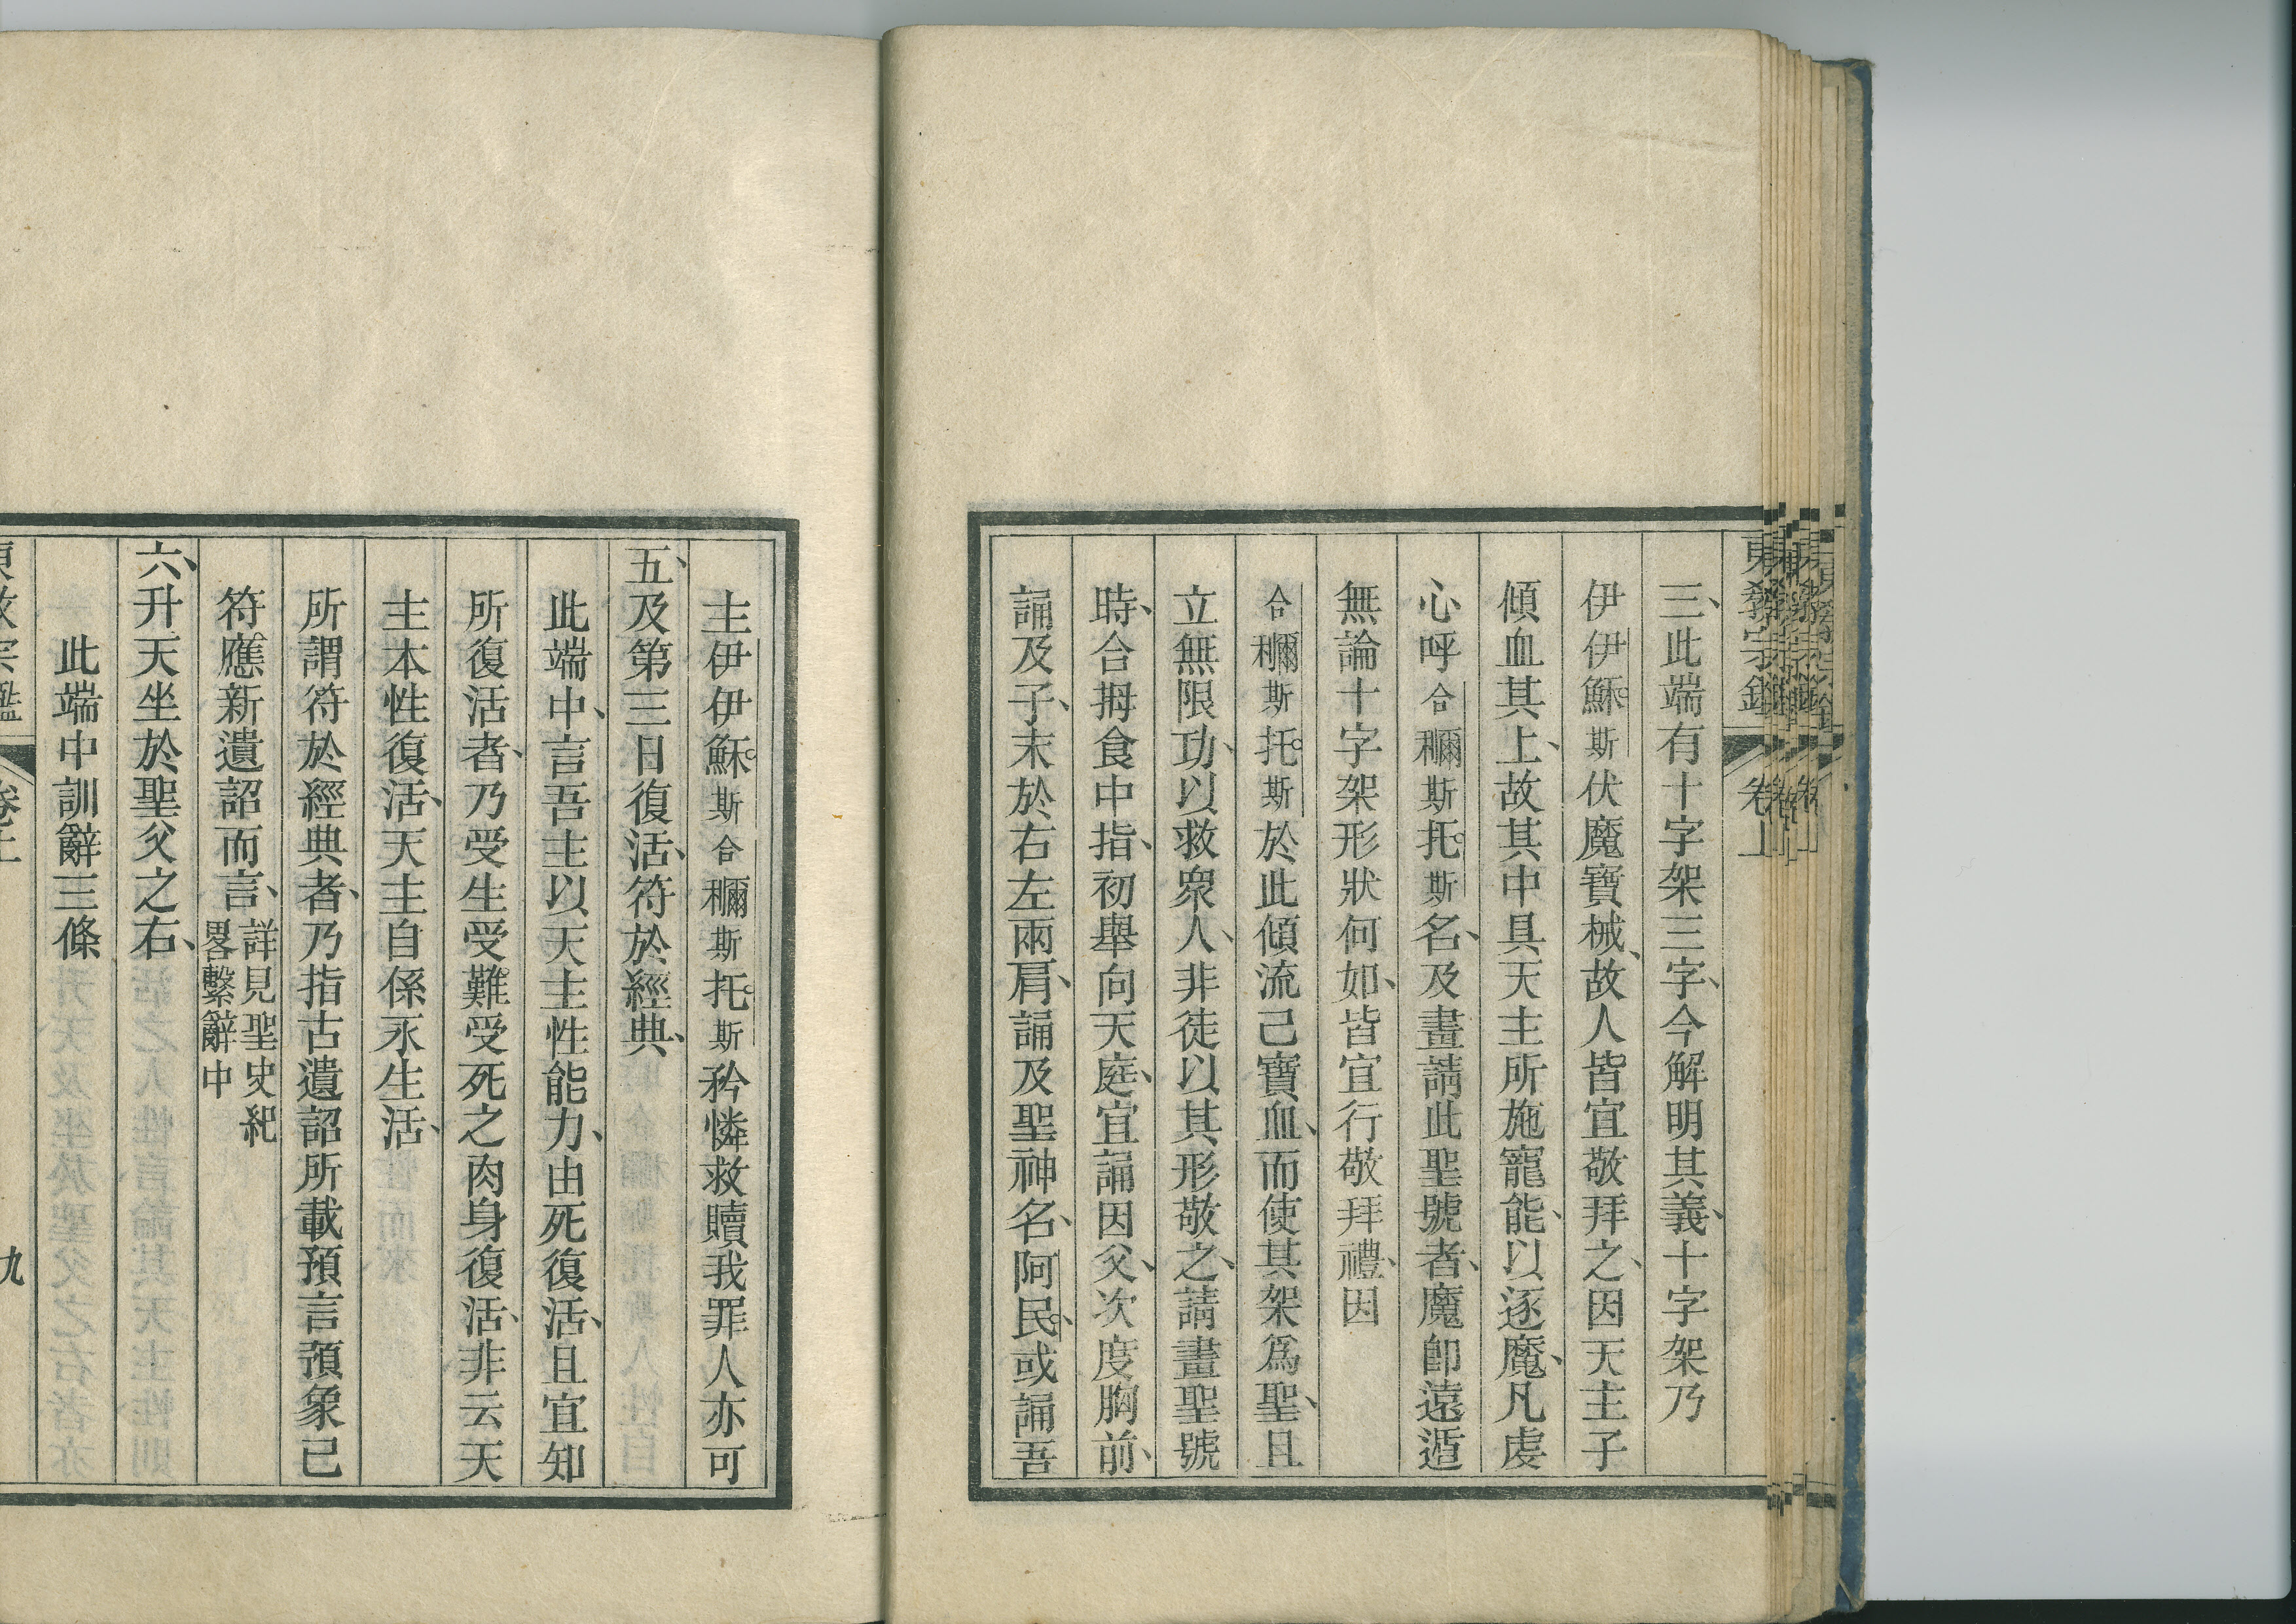 東教宗鑑 卷上
三、此端有十字架三字、今解明其義、十字架乃
伊伊穌斯伏魔寶械、故人皆宜敬拜之、因天主子
傾血其上、故其中具天主所施寵能、以逐魔、凡虔
心呼合穪斯托斯名、及畫請此聖號者、魔卽遠遁
無論十字架形狀何如、皆宜行敬拜禮、因
合穪斯托斯於此傾流己寶血、而使其架爲聖、且
立無限功、以救衆人、非徒以其形敬之、請畫聖號
時、合拇食中指、初舉向天庭、宜誦因父、次度胸前、
誦及子、末於右左兩肩、誦及聖神名、阿民、或誦吾
主伊伊穌斯合穪斯托斯矜憐救贖我罪人亦可
五、及第三日復活、符於經典、
此端中、言吾主以天主性能力、由死復活、且宜知
所復活者、乃受生受難受死之肉身復活、非云天
主本性復活、天主自係永生活、
所謂符於經典者、乃指古遺詔所載預言預象已
符應新遺詔而言、詳見聖史紀
畧繫辭中
六、升天坐於聖父之右、
此端中訓辭三條
東教宗鑑 卷上 九